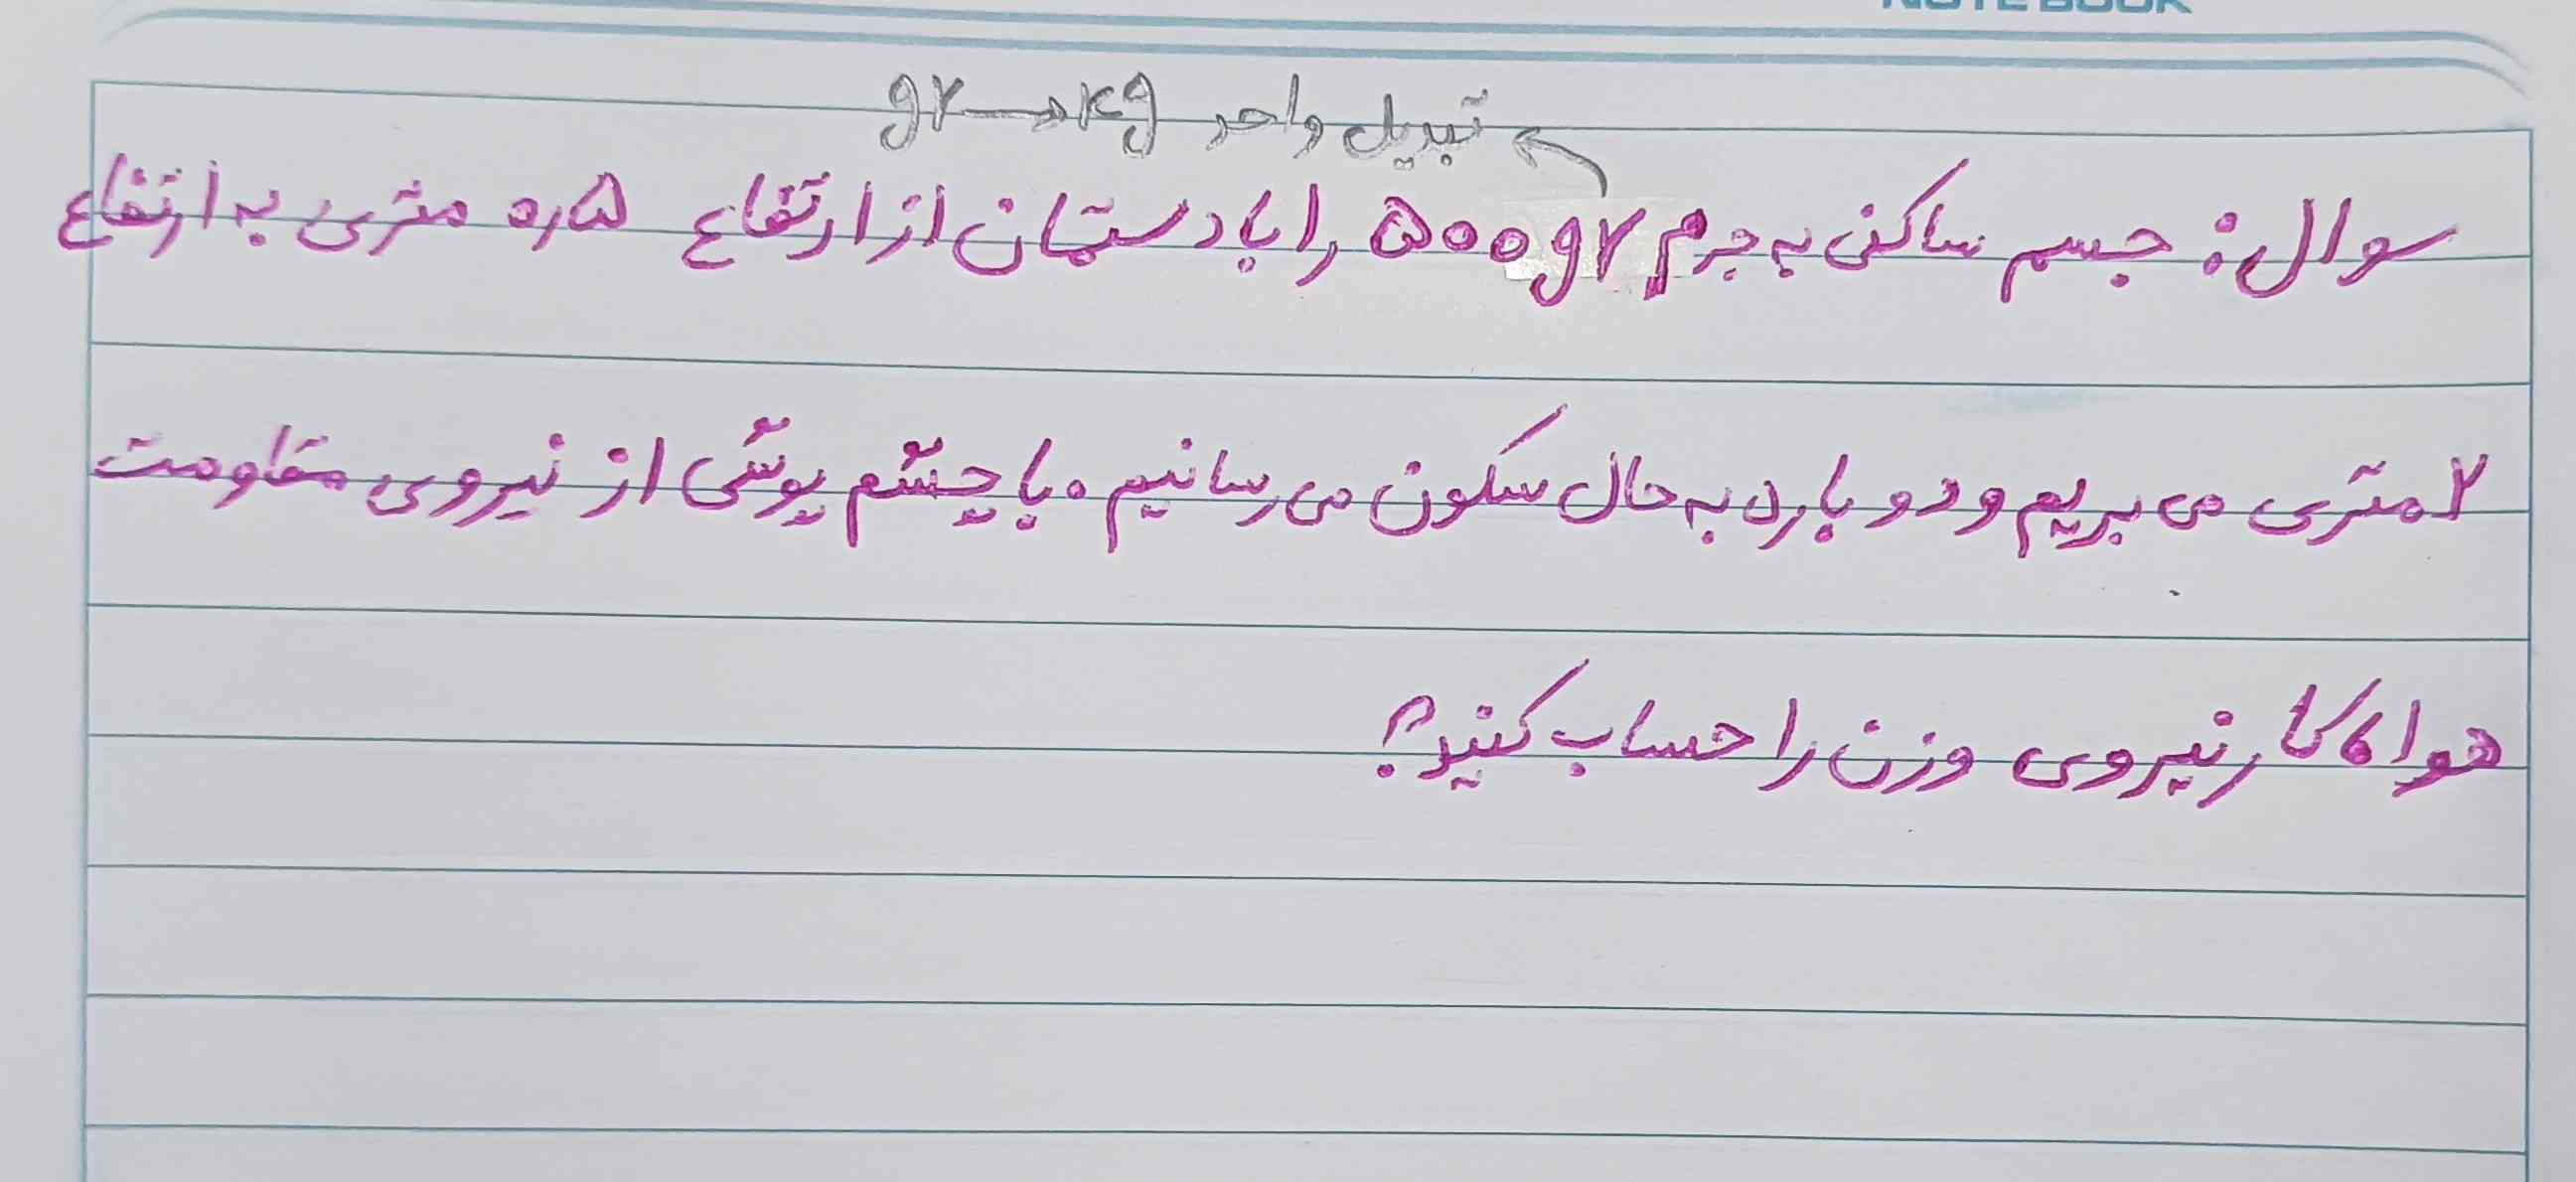 NOTE BOOK
تبدیل واحد gr → kg
سوال: جسم ساکنی به جرم ۵۰۰gr را با دستمان از ارتفاع ۰٫۵ متری به ارتفاع
۲ متری می بریم و دوباره به حال سکون می رسانیم. با چشم پوشی از نیروی مقاومت
هوا، کار نیروی وزن را حساب کنید؟